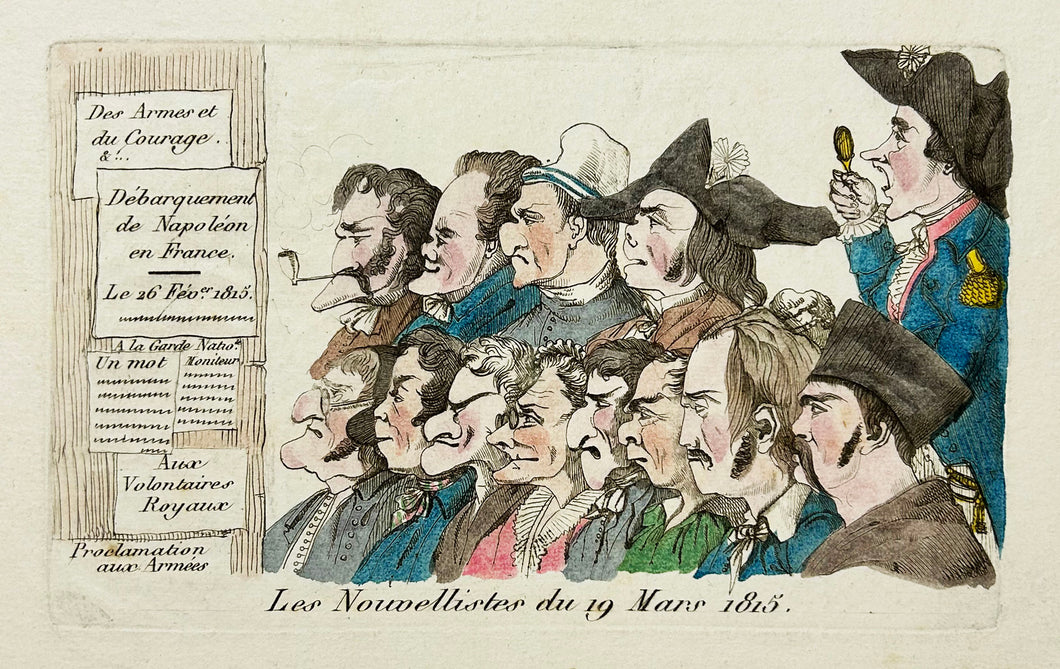 Des Armes et
du Courage.
&c...
Débarquement
de Napoléon
en France.
Le 26 Févr. 1815.
A la Garde Natio.
Un mot
Moniteur
Aux
Volontaires
Royaux
Proclamation
aux Armées
Les Nouvellistes du 19 Mars 1815.